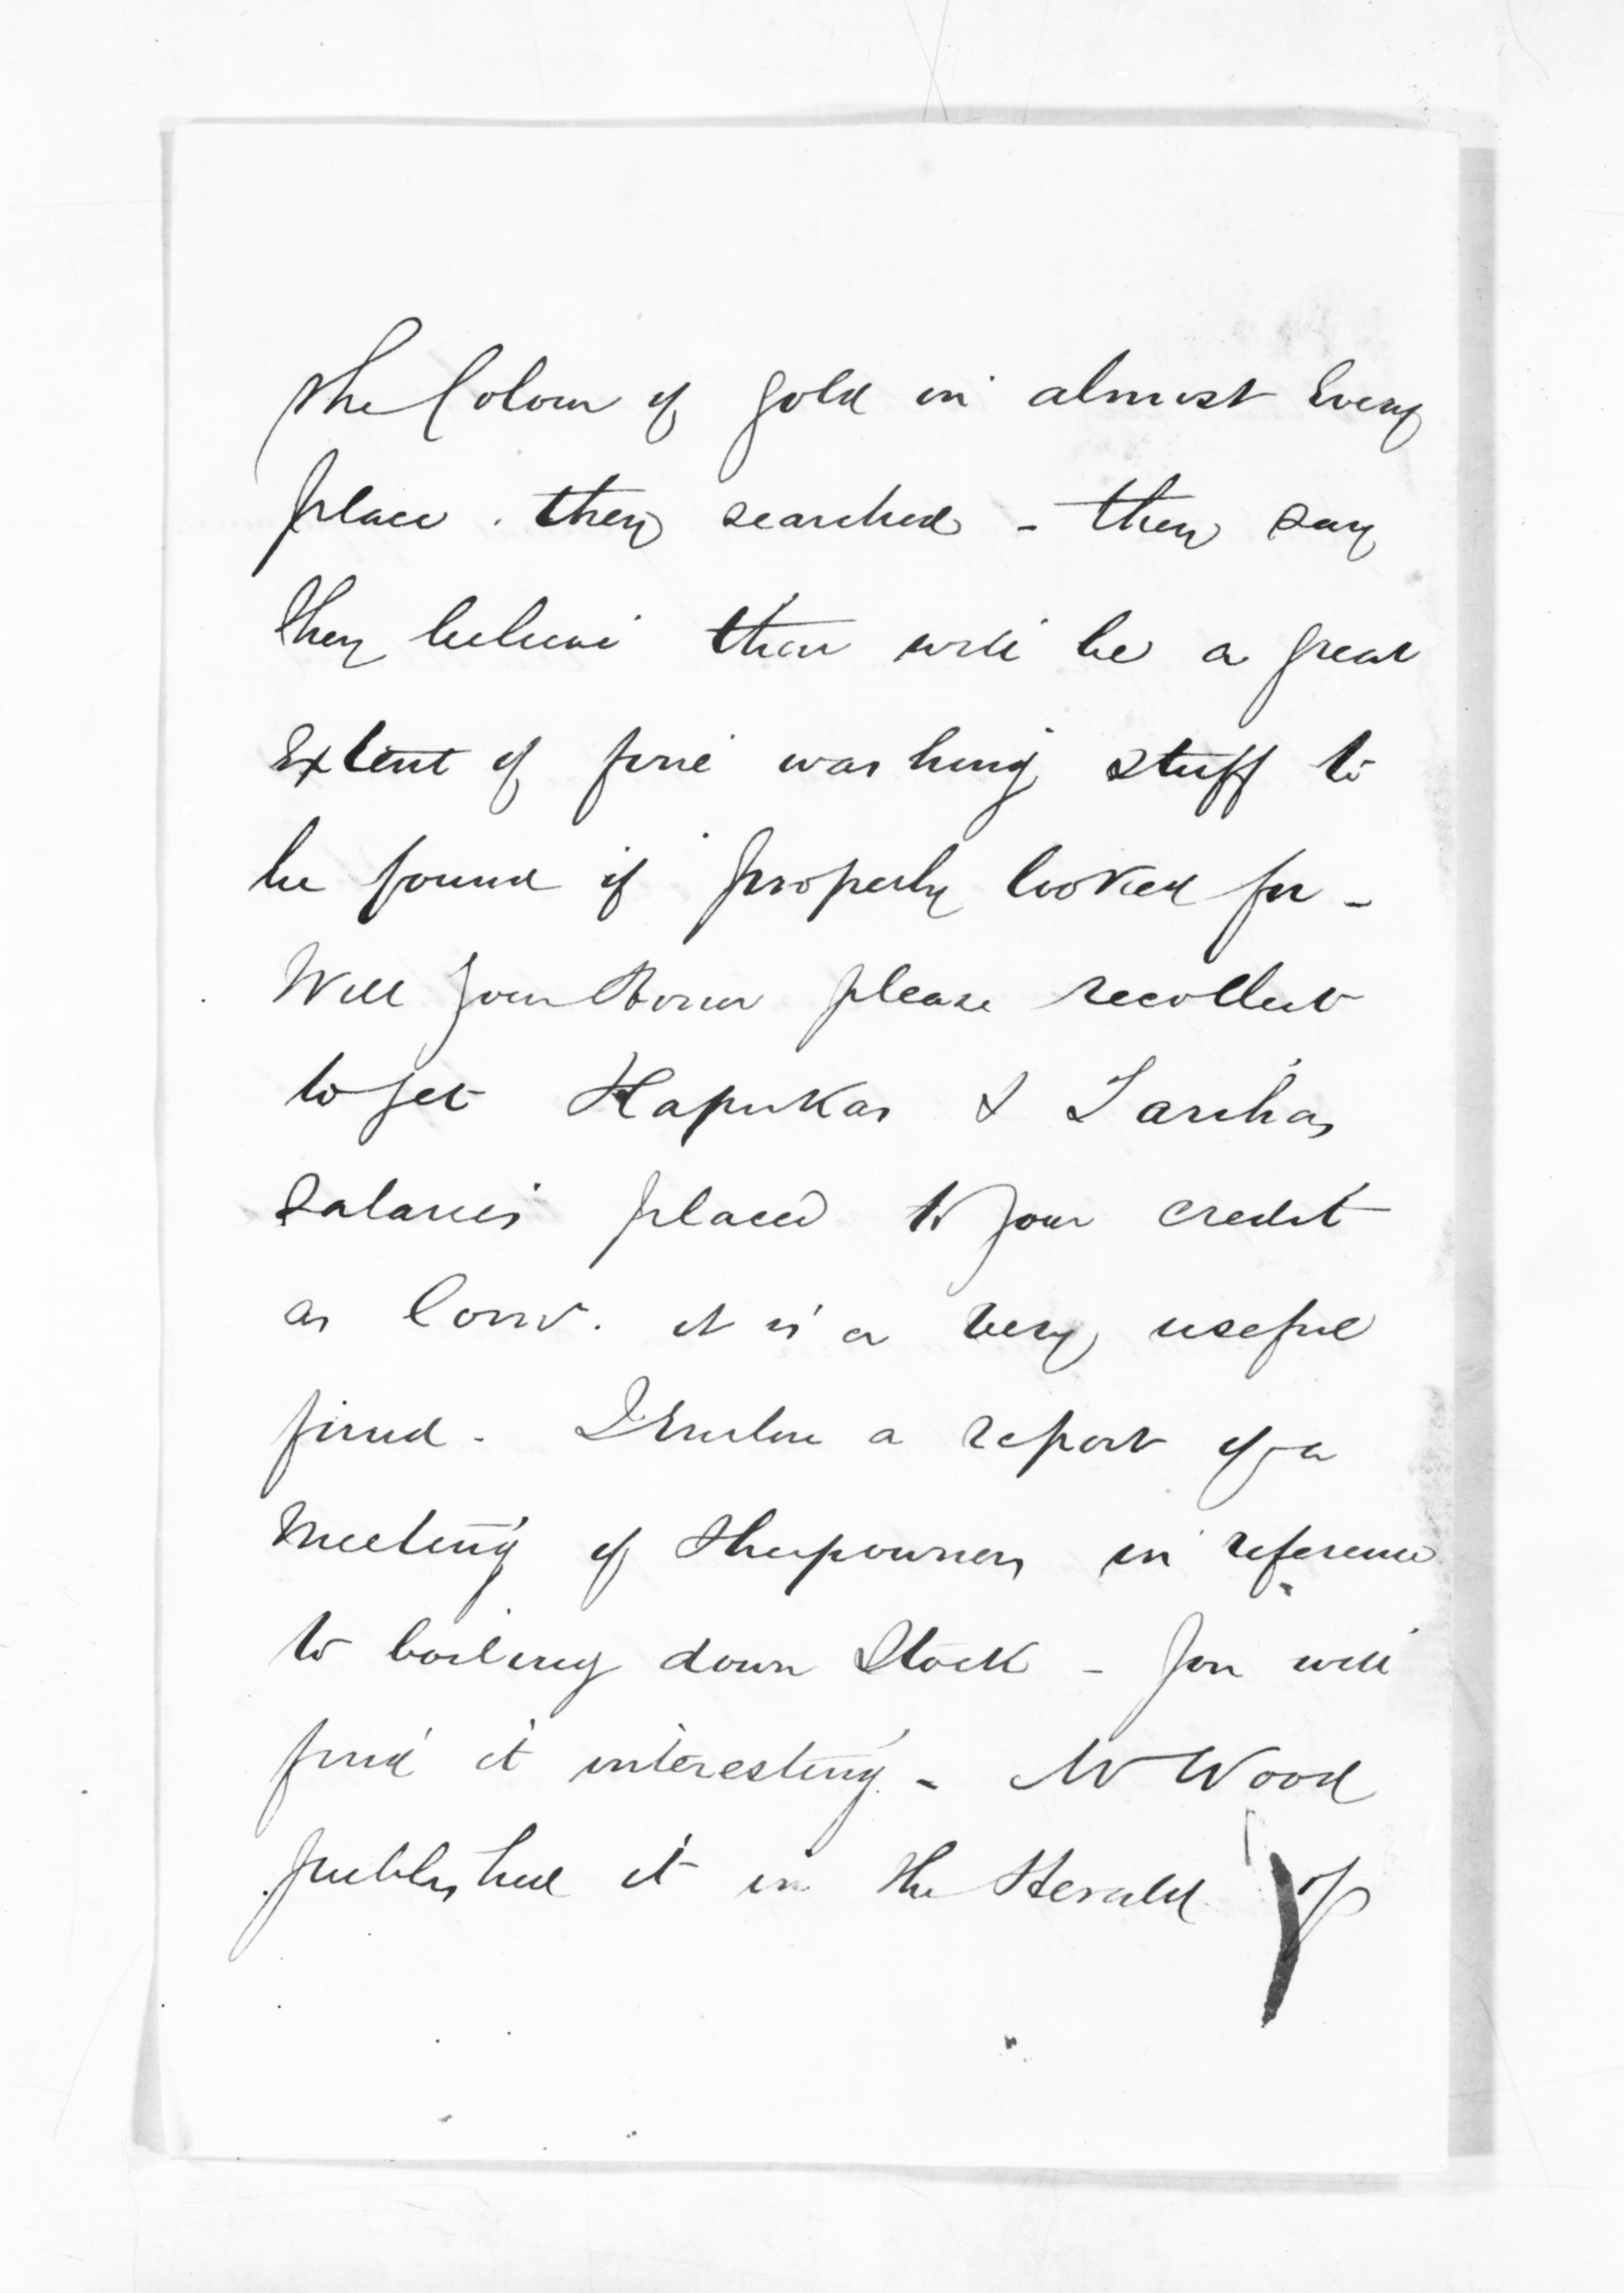 the Colour of gold in almost Every
place. they searched - they say
they believe there will be a great
Extent of fine washing stuff to
be found if properly looked for -
Will your Honor please recollect
to get Hapukas & Tareha's
Salaries placed to your credit
as it is a very useful
fund. I Enclose a report of a
Meeting of Sheepowners in reference
to boiling down Stock - you will
find it interesting - Mr Wood
published it in the Herald